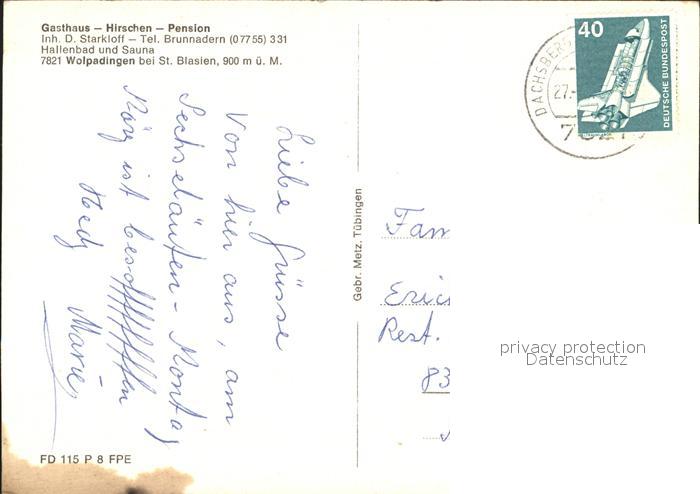 Gasthaus – Hirschen – Pension
Inh. D. Starkloff – Tel. Brunnadern (0 77 55) 3 31
Hallenbad und Sauna
7821 Wolpadingen bei St. Blasien, 900 m ü. M.
40
DEUTSCHE BUNDESPOST
DACHSBERG
27.
Liebe Grüsse
von hier aus, am
Sechseläuten-Montag
ist besoffffffffen
Hedy Marie
Gebr. Metz, Tübingen
Fam
Eric
Rest.
83
privacy protection
Datenschutz
FD 115 P 8 FPE